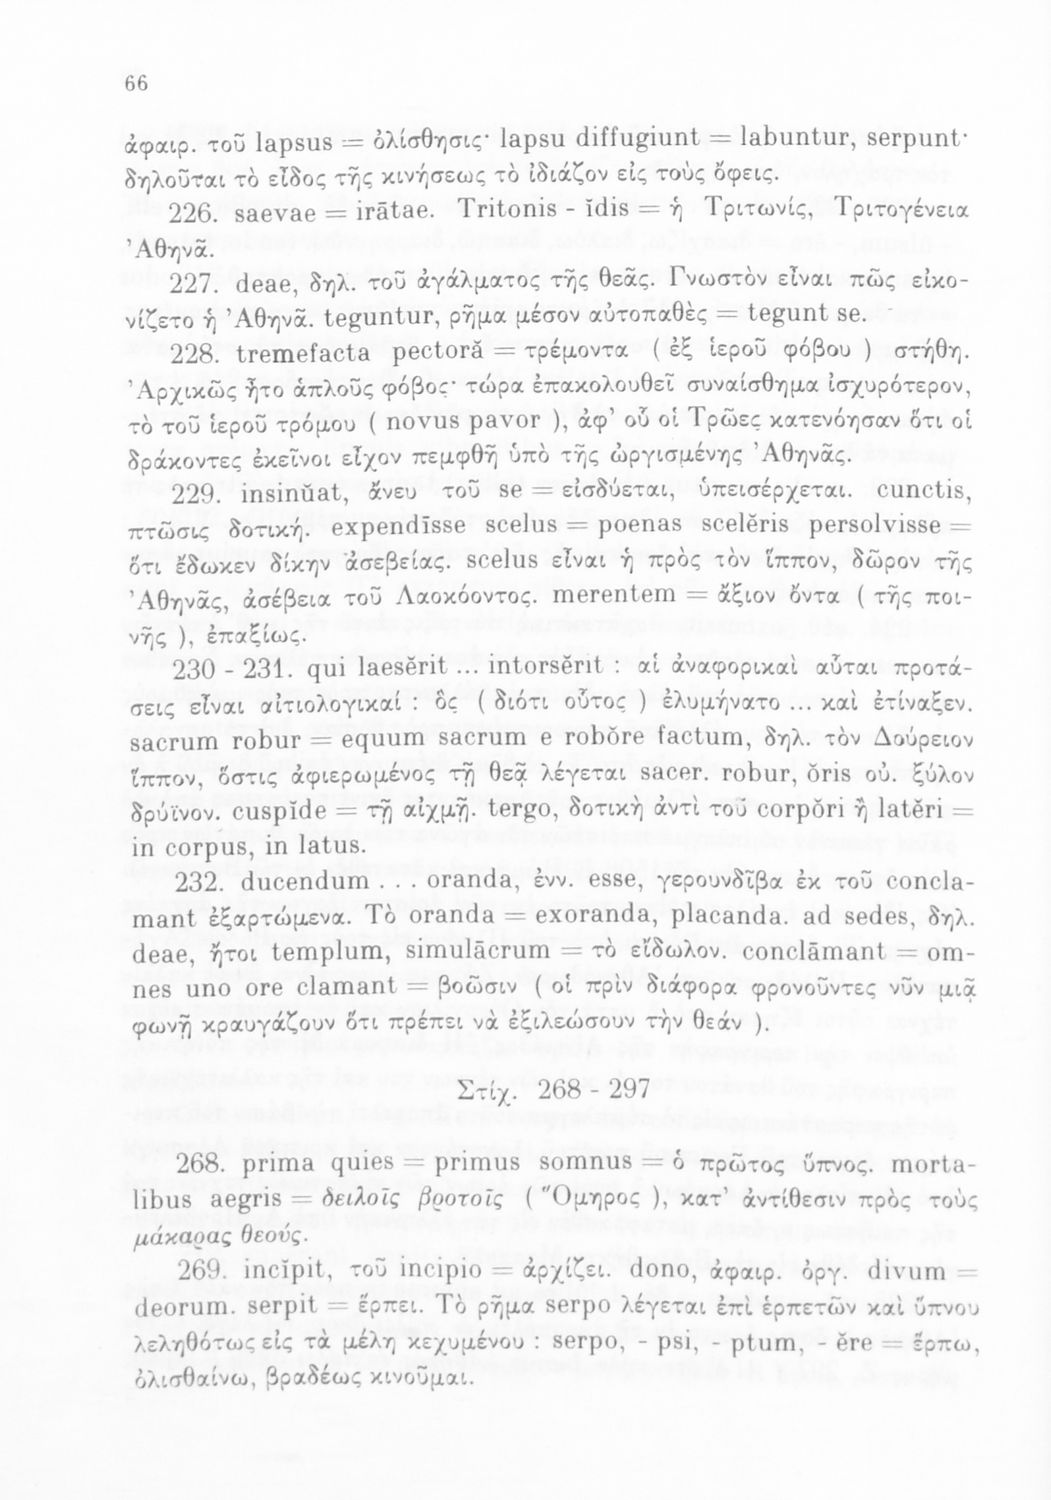 66
ἀφαιρ. τοῦ lapsus = ὀλίσθησις· lapsu diffugiunt = labuntur, serpunt·
δηλοῦται τὸ εἶδος τῆς κινήσεως τὸ ἰδιάζον εἰς τοὺς ὄφεις.
226. saevae = irātae. Tritonis - ĭdis = ἡ Τριτωνίς, Τριτογένεια
Ἀθηνᾶ.
227. deae, δηλ. τοῦ ἀγάλματος τῆς θεᾶς. Γνωστὸν εἶναι πῶς εἰκο-
νίζετο ἡ Ἀθηνᾶ. teguntur, ρῆμα μέσον αὐτοπαθὲς = tegunt se.
228. tremefacta pectoră = τρέμοντα ( ἐξ ἱεροῦ φόβου ) στήθη.
Ἀρχικῶς ἦτο ἁπλοῦς φόβος· τώρα ἐπακολουθεῖ συναίσθημα ἰσχυρότερον,
τὸ τοῦ ἱεροῦ τρόμου ( novus pavor ), ἀφ’ οὗ οἱ Τρῶες κατενόησαν ὅτι οἱ
δράκοντες ἐκεῖνοι εἶχον πεμφθῆ ὑπὸ τῆς ὠργισμένης Ἀθηνᾶς.
229. insinŭat, ἄνευ τοῦ se = εἰσδύεται, ὑπεισέρχεται. cunctis,
πτῶσις δοτική. expendīsse scelus = poenas scelĕris persolvisse =
ὅτι ἔδωκεν δίκην ἀσεβείας. scelus εἶναι ἡ πρὸς τὸν ἵππον, δῶρον τῆς
Ἀθηνᾶς, ἀσέβεια τοῦ Λαοκόοντος. merentem = ἄξιον ὄντα ( τῆς ποι-
νῆς ), ἐπαξίως.
230 - 231. qui laesĕrit ... intorsĕrit : αἱ ἀναφορικαὶ αὗται προτά-
σεις εἶναι αἰτιολογικαί : ὃς ( διότι οὗτος ) ἐλυμήνατο ... καὶ ἐτίναξεν.
sacrum robur = equum sacrum e robŏre factum, δηλ. τὸν Δούρειον
ἵππον, ὅστις ἀφιερωμένος τῇ θεᾷ λέγεται sacer. robur, ŏris οὐ. ξύλον
δρύϊνον. cuspĭde = τῇ αἰχμῇ. tergo, δοτικὴ ἀντὶ τοῦ corpŏri ἢ latĕri =
in corpus, in latus.
232. ducendum . . . oranda, ἐνν. esse, γερουνδῖβα ἐκ τοῦ concla-
mant ἐξαρτώμενα. Τὸ oranda = exoranda, placanda. ad sedes, δηλ.
deae, ἤτοι templum, simulācrum = τὸ εἴδωλον. conclāmant = om-
nes uno ore clamant = βοῶσιν ( οἱ πρὶν διάφορα φρονοῦντες νῦν μιᾷ
φωνῇ κραυγάζουν ὅτι πρέπει νὰ ἐξιλεώσουν τὴν θεάν ).
Στίχ. 268 - 297
268. prima quies = primus somnus = ὁ πρῶτος ὕπνος. morta-
libus aegris = δειλοῖς βροτοῖς ( Ὅμηρος ), κατ’ ἀντίθεσιν πρὸς τοὺς
μάκαρας θεούς.
269. incĭpit, τοῦ incipio = ἀρχίζει. dono, ἀφαιρ. ὀργ. divum =
deorum. serpit = ἕρπει. Τὸ ρῆμα serpo λέγεται ἐπὶ ἑρπετῶν καὶ ὕπνου
λεληθότως εἰς τὰ μέλη κεχυμένου : serpo, - psi, - ptum, - ĕre = ἕρπω,
ὀλισθαίνω, βραδέως κινοῦμαι.